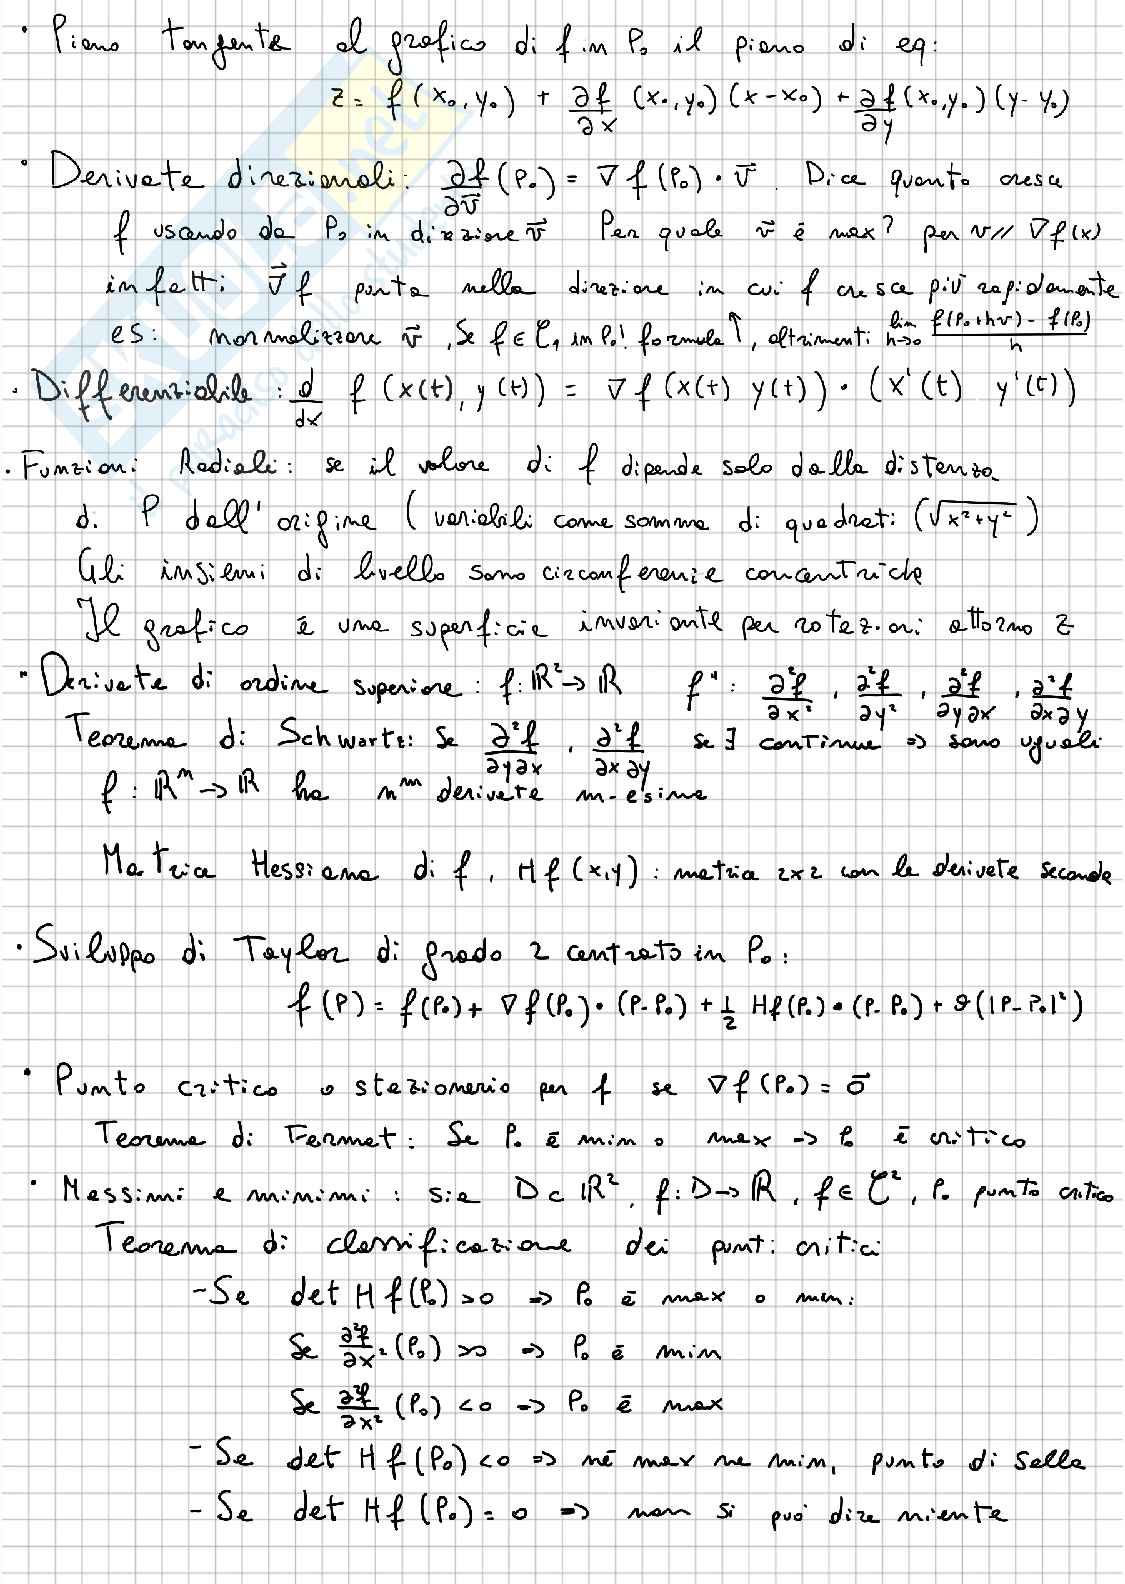 • Piano tangente al grafico di f in P₀ il piano di eq:
z = f(x₀,y₀) + ∂f/∂x (x₀,y₀)(x-x₀) + ∂f/∂y (x₀,y₀)(y-y₀)
• Derivate direzionali: ∂f/∂v⃗ (P₀) = ∇f(P₀)·v⃗. Dice quanto cresce
f uscendo da P₀ in direzione v⃗ Per quale v⃗ è max? per v // ∇f(x)
infatti ∇⃗f punta nella direzione in cui f cresce più rapidamente
es: normalizzare v⃗, Se f ∈ C₁ in P₀! formula ↑, altrimenti lim h→0 f(P₀+hv) - f(P₀) / h
• Differenziabile: d/dx f(x(t), y(t)) = ∇f(x(t) y(t))·(x'(t) y'(t))
• Funzioni Radiali: se il valore di f dipende solo dalla distanza
di P dall'origine (variabili come somma di quadrati (√x²+y²)
Gli insiemi di livello sono circonferenze concentriche
Il grafico è una superficie invariante per rotazioni attorno z
• Derivate di ordine superiore: f: ℝ² → ℝ f'': ∂²f/∂x², ∂²f/∂y², ∂²f/∂y∂x, ∂²f/∂x∂y
Teorema di Schwartz: Se ∂²f/∂y∂x, ∂²f/∂x∂y se ∃ continue ⇒ sono uguali
f: ℝⁿ → ℝ ha nᵐ derivate m-esime
Matrice Hessiana di f, Hf(x,y): matrice 2x2 con le derivate seconde
• Sviluppo di Taylor di grado 2 centrato in P₀:
f(P) = f(P₀) + ∇f(P₀)·(P-P₀) + ½ Hf(P₀)·(P-P₀) + ϑ(|P-P₀|²)
• Punto critico o stazionario per f se ∇f(P₀) = o⃗
Teorema di Fermat: Se P₀ è min o max → P₀ è critico
• Massimi e minimi: sia D ⊂ ℝ², f: D → ℝ, f ∈ C², P₀ punto critico
Teorema di classificazione dei punti critici
- Se det Hf(P₀) > 0 ⇒ P₀ è max o min:
Se ∂²f/∂x² (P₀) > 0 ⇒ P₀ è min
Se ∂²f/∂x² (P₀) < 0 ⇒ P₀ è max
- Se det Hf(P₀) < 0 ⇒ né max ne min, punto di sella
- Se det Hf(P₀) = 0 ⇒ non si può dire niente